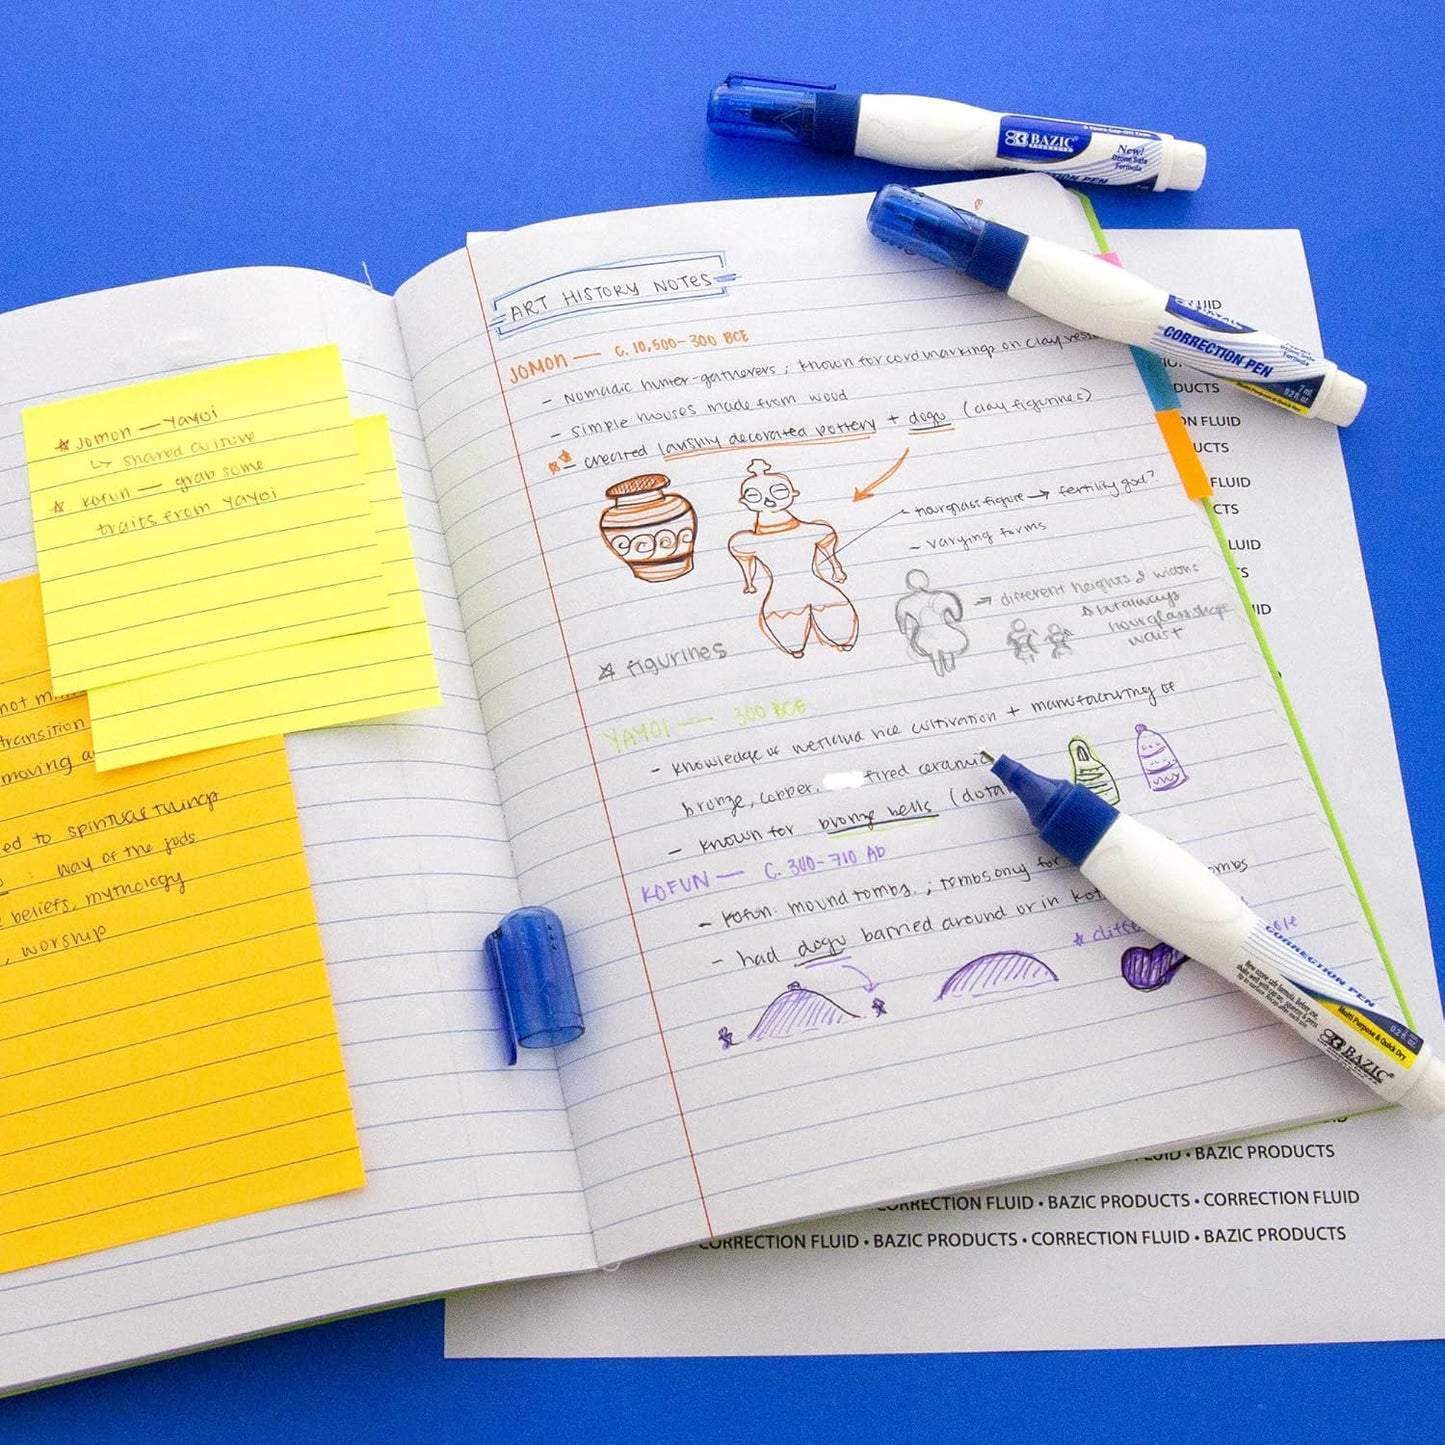 ☆ JOMON — YAYOI
↳ shared culture
☆ KOFUN — grab some
traits from YAYOI
not
transition
moving a
ed to spiritual things
: way of the gods
beliefs, mythology
, worship
ART HISTORY NOTES
JOMON — C. 10,500-300 BCE
- Nomadic hunter-gatherers ; known for cord markings on clay
- simple houses made from wood
- created lavishly decorated pottery + dogu (clay figurines)
- hourglass figure → fertility god?
- varying forms
→ different heights & widths
always
hourglass shape
waist
☆ figurines
YAYOI — 300 BCE
- knowledge of wetland rice cultivation + manufacturing of
bronze, copper, fired ceramic
- known for bronze bells
KOFUN — C. 300-710 AD
- Kofun: mound tombs. ; tombs only for
- had dogu barried around or in
BAZIC®
PRODUCTS
New!
Ozone Safe
Formula
CORRECTION PEN
CORRECTION PEN
7 ml
0.2 fl oz.
CORRECTION PEN
Multi Purpose & Quick Dry
BAZIC®
UID
DUCTS
ON FLUID
UCTS
FLUID
CTS
LUID
TS
UID
UID • BAZIC PRODUCTS
CORRECTION FLUID • BAZIC PRODUCTS • CORRECTION FLUID
CORRECTION FLUID • BAZIC PRODUCTS • CORRECTION FLUID • BAZIC PRODUCTS